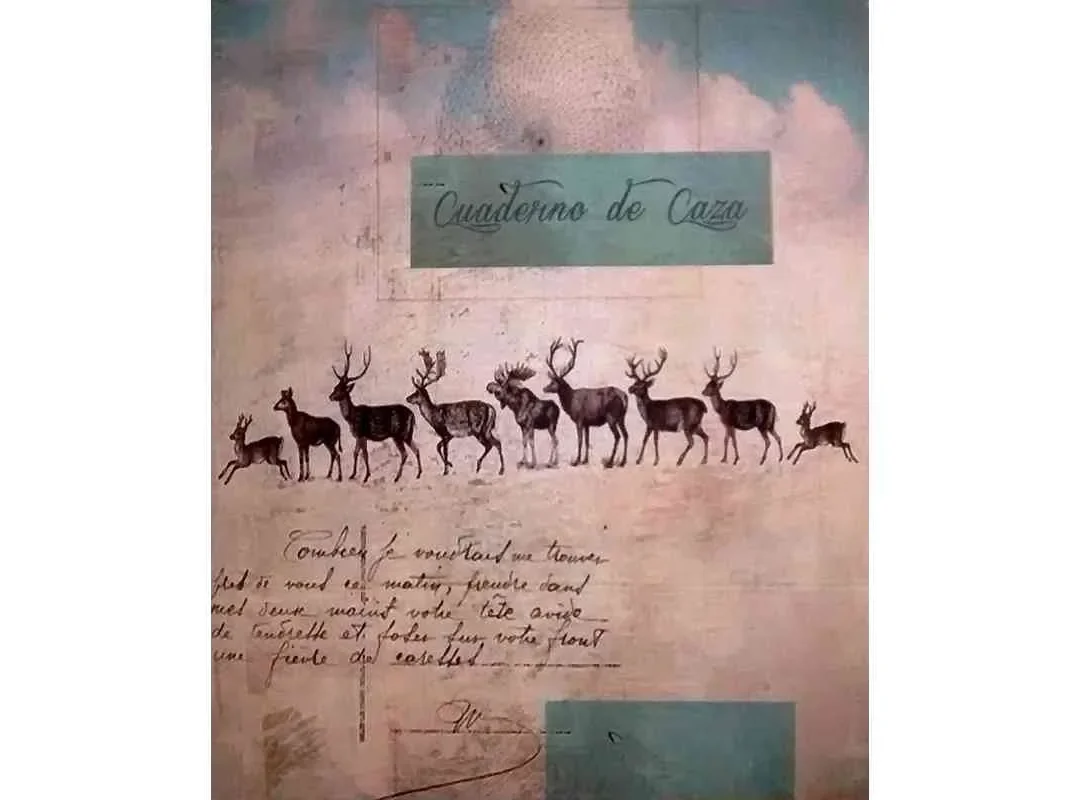 Cuaderno de Caza
Combien je voudrais me trouver
près de vous ce matin, prendre dans
mes deux mains votre tête avide
de tendresse et poser sur votre front
une fièvre de caresses